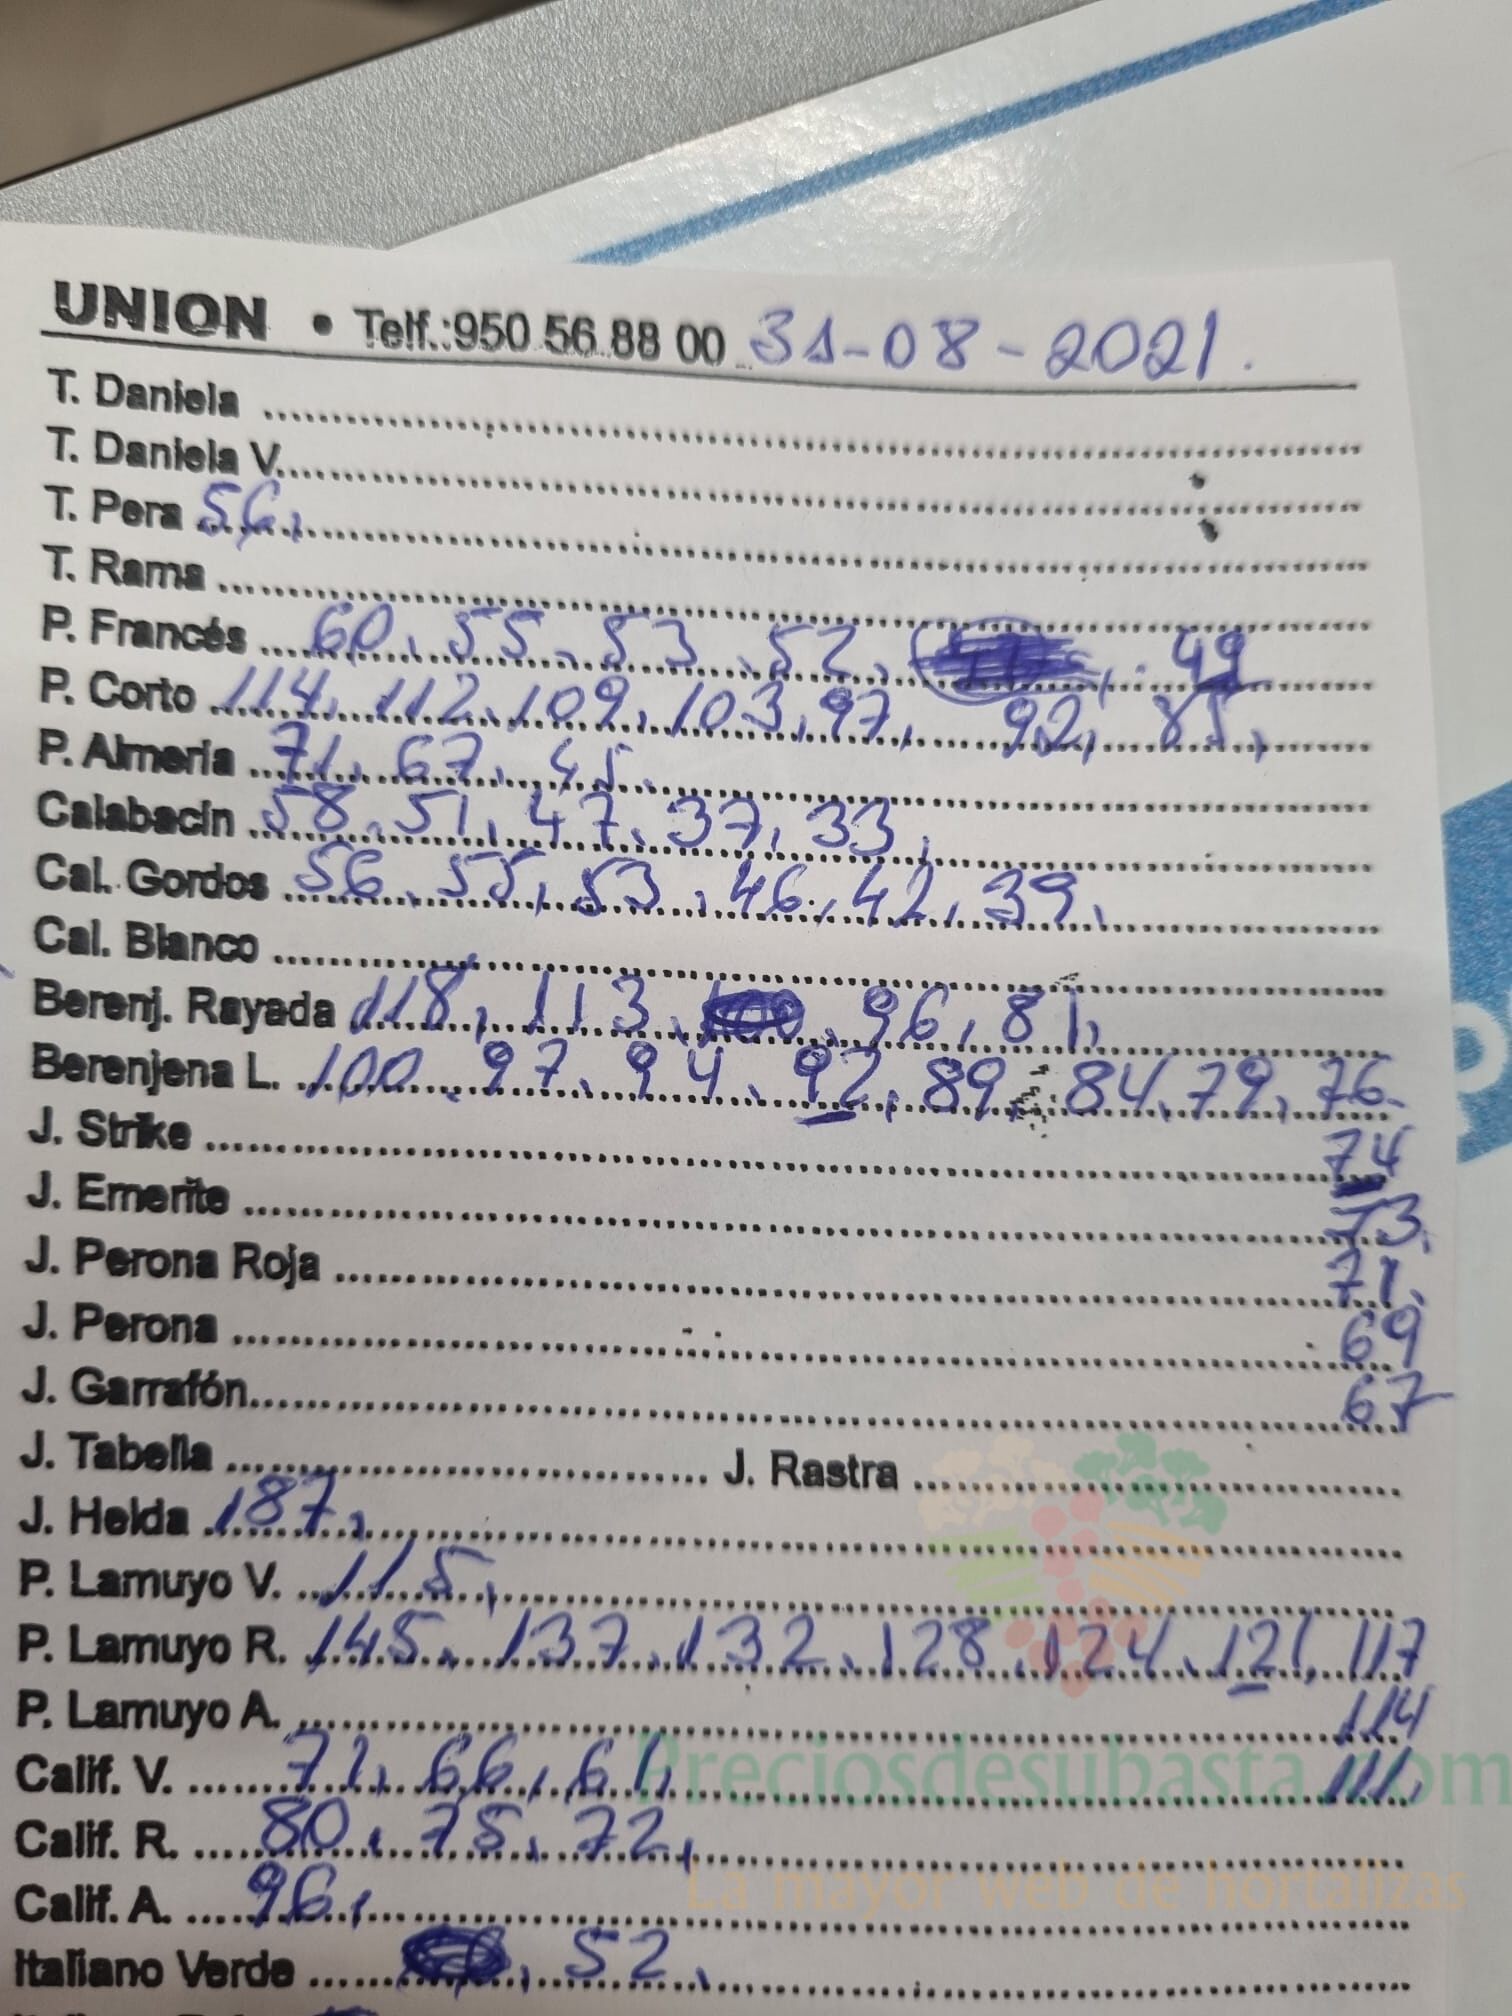 UNION • Telf.:950 56 88 00 31-08-2021.
T. Daniela
T. Daniela V.
T. Pera 56,
T. Rama
P. Francés 60, 55, 53, 52, 49
P. Corto 114, 112, 109, 103, 97, 92, 85,
P. Almería 71, 67, 45.
Calabacín 58, 51, 47, 37, 33,
Cal. Gordos 56, 55, 53, 46, 42, 39,
Cal. Blanco
Berenj. Rayada 118, 113, 96, 81,
Berenjena L. 100, 97, 94, 92, 89, 84, 79, 76-
J. Strike 74
J. Emerite 73,
J. Perona Roja 71,
J. Perona 69
J. Garrafón 67
J. Tabella J. Rastra
J. Helda 187,
P. Lamuyo V. 115,
P. Lamuyo R. 145, 137, 132, 128, 124, 121, 117
P. Lamuyo A. 114
Calif. V. 71, 66, 61, 111,
Preciosdesubasta.com
Calif. R. 80, 75, 72,
La mayor web de hortalizas
Calif. A. 96,
Italiano Verde 52,